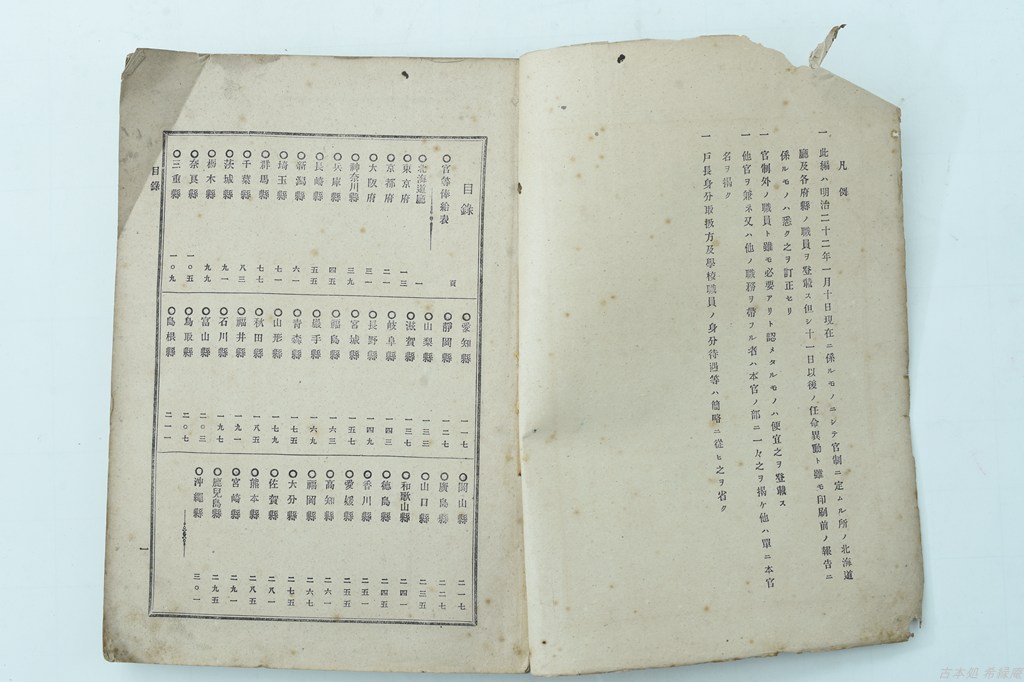 凡例
一 此編ハ明治二十二年一月十日現在ニ係ルモノニシテ官制ニ定ムル所ノ北海道
廳及各府縣ノ職員ヲ登載ス但シ十一日以後ノ任命異動ト雖モ印刷前ノ報告ニ
係ルモノハ悉ク之ヲ訂正セリ
一 官制外ノ職員ト雖モ必要アリト認メタルモノハ便宜之ヲ登載ス
一 他官ヲ兼ネ又ハ他ノ職務ヲ帶フル者ハ本官ノ部ニ一々之ヲ揭ケ他ハ單ニ本官
名ヲ揭ク
一 戸長身分取扱方及學校職員ノ身分待遇等ハ簡略ニ從ヒ之ヲ省ク
目錄
頁
○官等俸給表
○北海道廳 一
○東京府 一三
○京都府 二一
○大阪府 三一
○神奈川縣 三九
○兵庫縣 四五
○長崎縣 五五
○新潟縣 六一
○埼玉縣 七一
○群馬縣 七七
○千葉縣 八三
○茨城縣 九一
○栃木縣 九九
○奈良縣 一〇五
○三重縣 一〇九
○愛知縣 一一七
○靜岡縣 一二七
○山梨縣 一三三
○滋賀縣 一三七
○岐阜縣 一四三
○長野縣 一四九
○宮城縣 一五七
○福島縣 一六三
○巖手縣 一六九
○青森縣 一七五
○山形縣 一七九
○秋田縣 一八五
○福井縣 一九一
○石川縣 一九七
○富山縣 二〇三
○鳥取縣 二〇七
○島根縣 二一一
○岡山縣 二一七
○廣島縣 二二七
○山口縣 二三五
○和歌山縣 二四一
○德島縣 二四五
○香川縣 二五一
○愛媛縣 二五五
○高知縣 二六一
○福岡縣 二六七
○大分縣 二七五
○佐賀縣 二八一
○熊本縣 二八五
○宮崎縣 二九一
○鹿兒島縣 二九五
○沖繩縣 三〇一
目錄
一
古本処 希縁庵